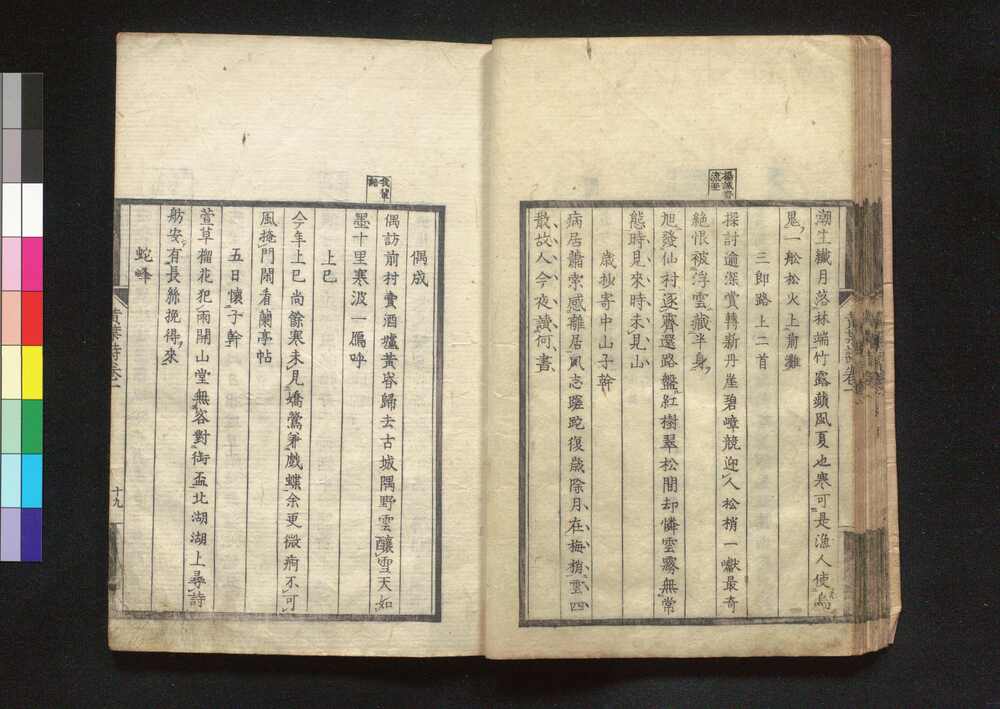 楊誠齋
流亞
潮生纖月落林端竹露蘋風夏也寒可是漁人使烏
鬼一舩松火上前灘
三郎路上二首
探討逾深賞轉新丹崖碧嶂競迎人松梢一巘最奇
絶恨被浮雲藏半身
旭發仙村逐霽還路盤紅樹翠松間却憐雲霧無常
態時見來時未見山
歳杪寄中山子幹
病居蕭索感離居夙志蹉跎復歳除月在梅梢雪四
散故人今夜讀何書
偶成
偶訪前村賣酒壚黃昏歸去古城隅野雲釀雪天如
墨十里寒波一鴈呼
上巳
今年上巳尚餘寒未見嬌鶯兼戲蝶余更微痾不可
風掩門閑看蘭亭帖
五日懷子幹
萱草榴花犯雨開山堂無客對銜盃北湖湖上尋詩
舫安有長絲挽得來
蛇峰
十九